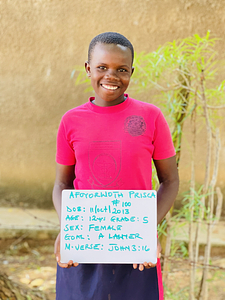 APOYORWOTH PRISCA
# 100
DOB: 11/Oct/2013
AGE: 12yrs GRADE: 5
SEX: FEMALE
GOAL: A LAWYER
M.VERSE: JOHN 3:16